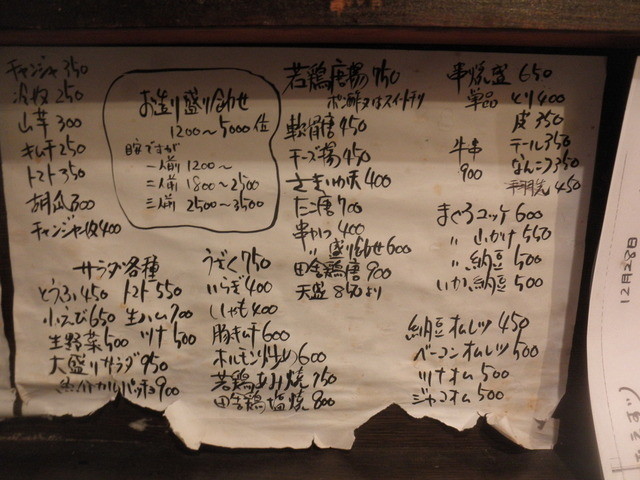 チャンジャ 350
冷奴 250
山芋 300
キムチ 250
トマト 350
胡瓜 300
チャンジャ奴 400
お造り盛り合わせ
1200〜5000位
目安ですが
一人前 1200〜
二人前 1800〜2500
三人前 2500〜3500
サラダ各種
とうふ 450 トマト 550
小えび 650 生ハム 700
生野菜 500 ツナ 500
大盛りサラダ 950
カルパッチョ 900
うざく 750
いらぎ 400
ししゃも 400
豚キムチ 600
ホルモン炒め 600
若鶏あみ焼 750
田舎鶏塩焼 800
若鶏唐揚 750
ポン酢又はスイートチリ
軟骨唐 450
チーズ揚 450
さきいか天 400
たこ唐 700
串かつ 400
〃 盛り合わせ 600
田舎鶏唐 900
天盛 850より
串焼盛 650
単品 とり 400
皮 350
牛串 テール 350
900 なんこつ 350
手羽先 450
まぐろユッケ 600
〃 山かけ 550
〃 納豆 500
いか納豆 500
納豆オムレツ 450
ベーコンオムレツ 500
ツナオム 500
ジャコオム 500
12月28日